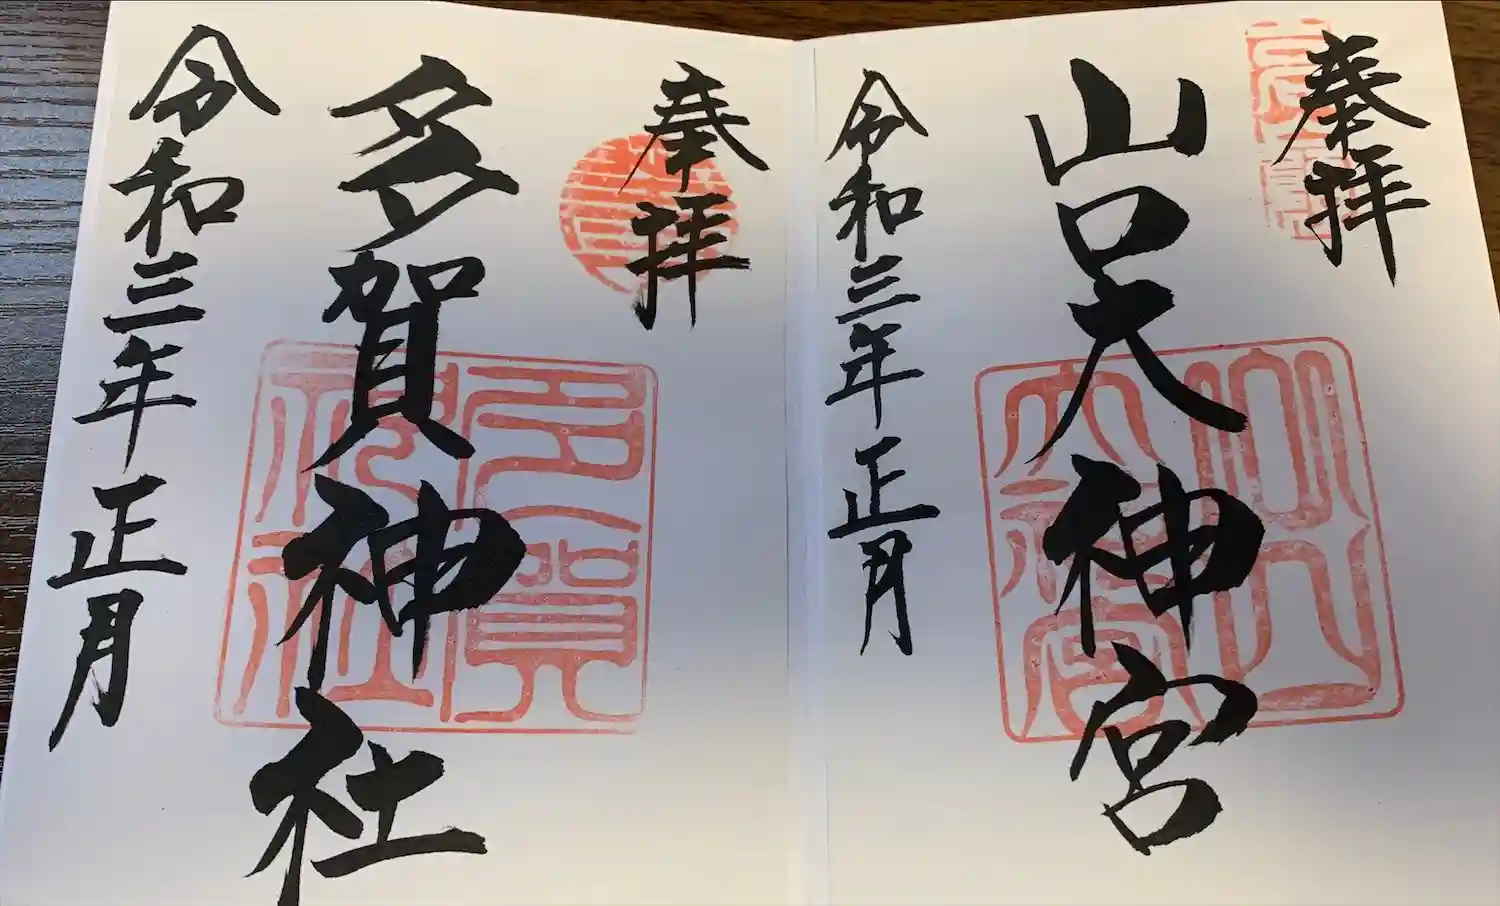 奉拝
山口大神宮
令和三年正月
奉拝
多賀神社
令和三年正月
山口大神宮
多賀神社